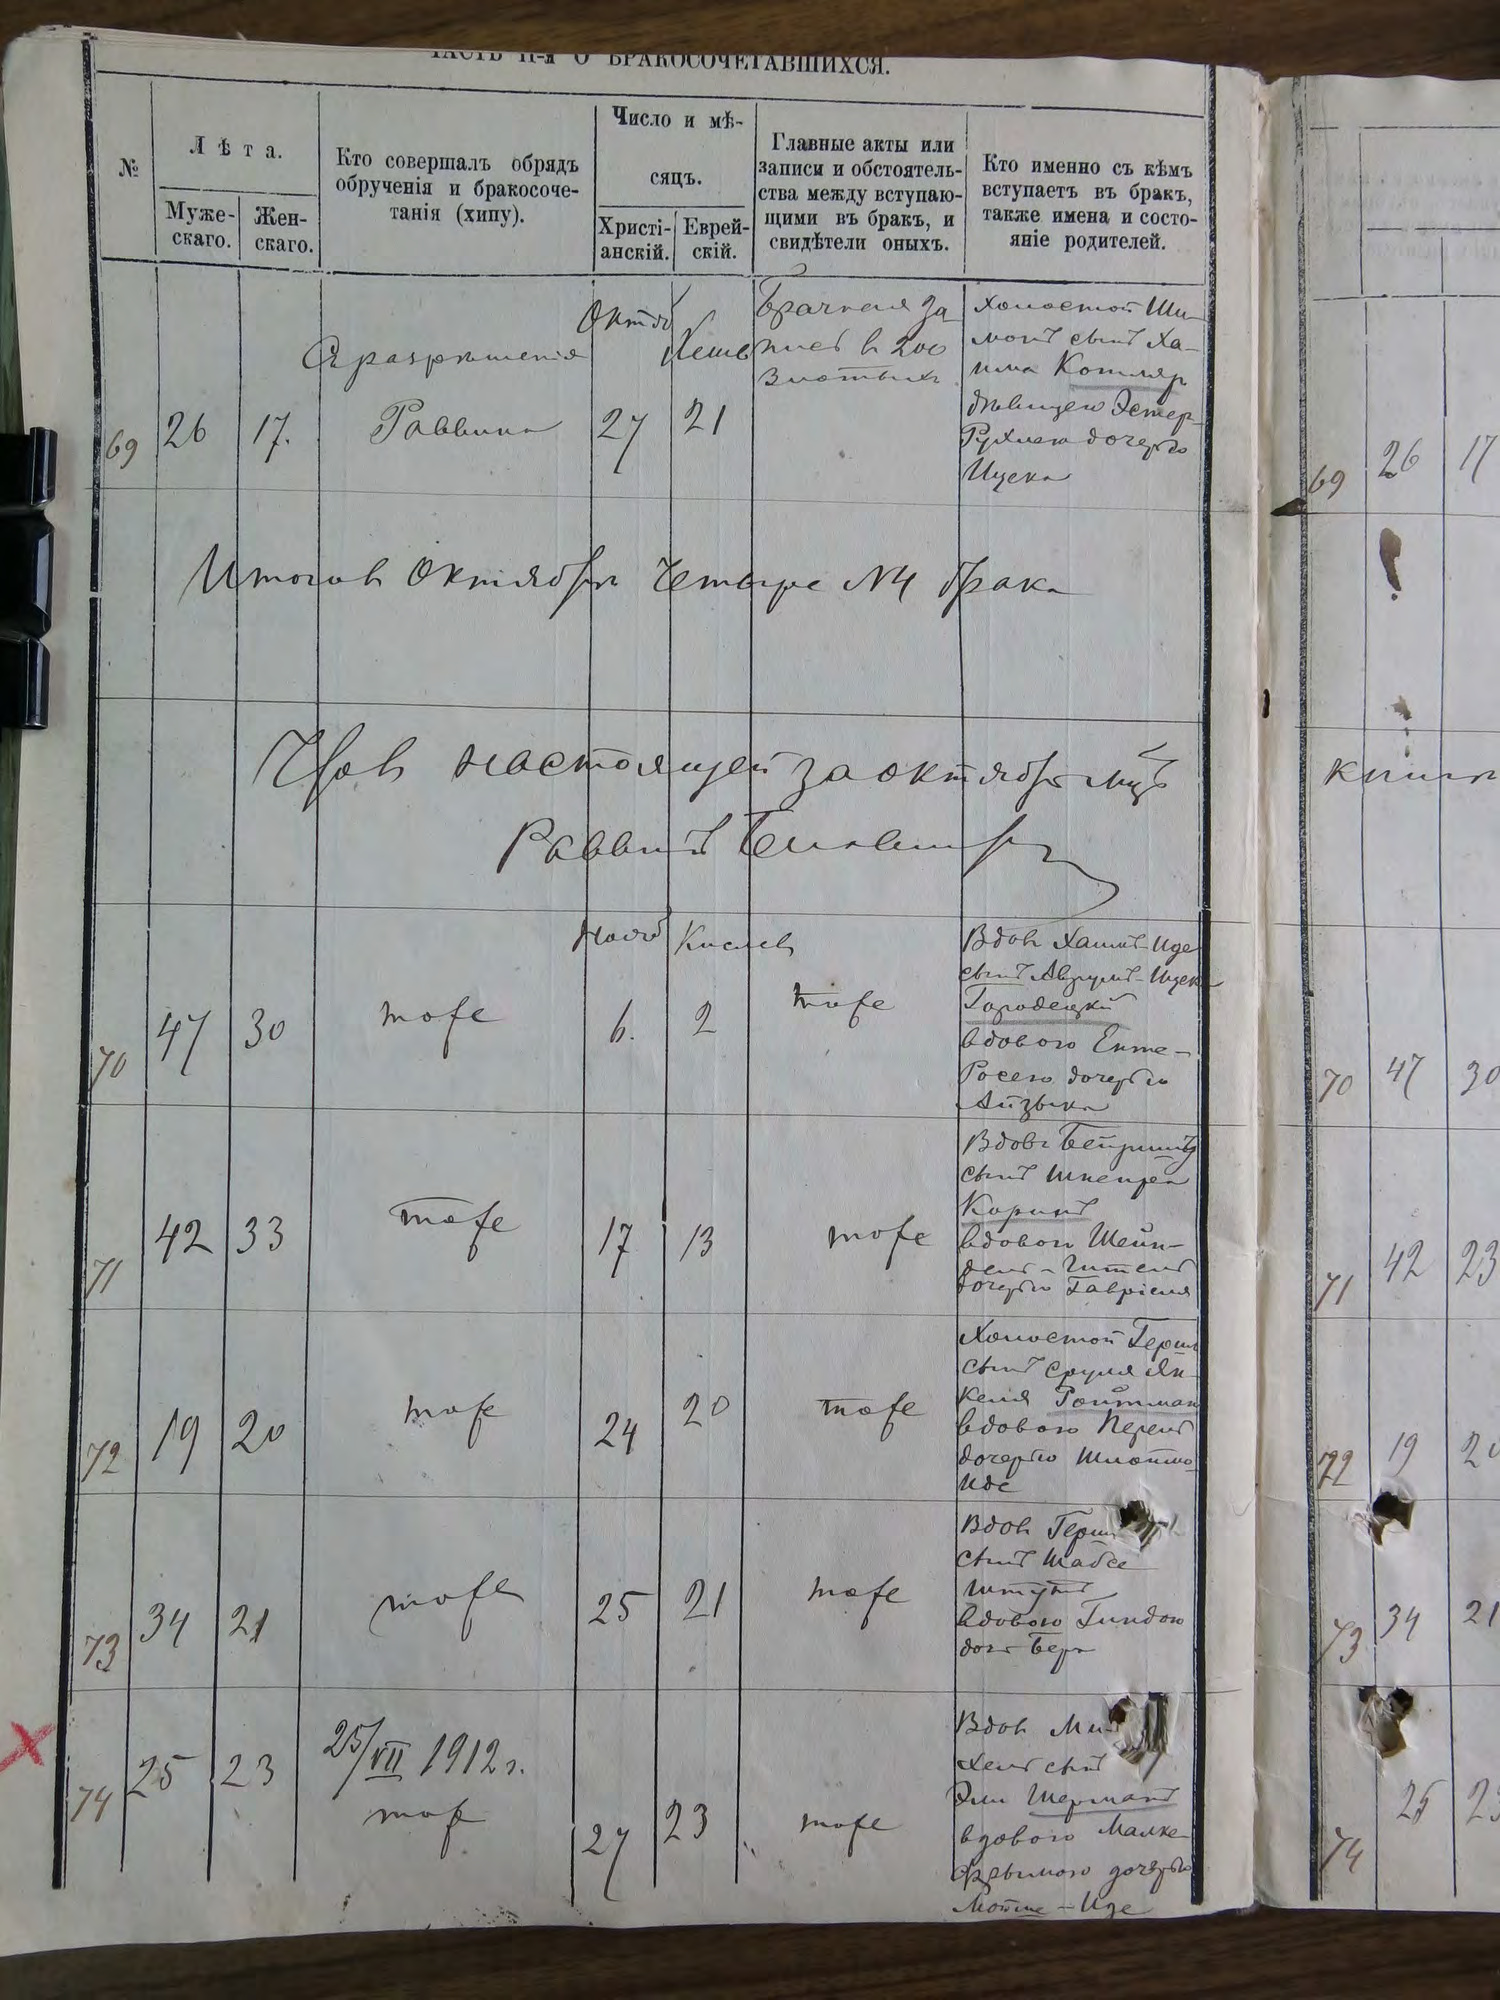 ЧАСТЬ II-я О БРАКОСОЧЕТАВШИХСЯ.
№
Лѣта.
Муже-
скаго.
Жен-
скаго.
Кто совершалъ обрядъ
обрученія и бракосоче-
танія (хипу).
Число и мѣ-
сяцъ.
Христі-
анскій.
Еврей-
скій.
Главные акты или
записи и обстоятель-
ства между вступаю-
щими въ бракъ, и
свидѣтели оныхъ.
Кто именно съ кѣмъ
вступаетъ въ бракъ,
также имена и состо-
яніе родителей.
69
26
17.
Съ разрѣшенія
Раввина
Октяб
27
Хешв
21
Брачная за
пись в 200
злотыхъ
Холостой Ши-
монъ сынъ Ха-
има Котляр
дѣвицею Эстер
Рухлею дочерью
Ицека
69
26
17
Итого в Октябрѣ Четыре №4 брака
настоящей за октябрь мцъ
Раввинъ
книги
70
47
30
тоже
Нояб
6.
Кислев
2
тоже
Вдов Хаимъ-Иде
сынъ Аврумъ-Ицека
Городецкій
вдовою Ента-
Росею дочерью
Айзыка
70
47
30
71
42
33
тоже
17
13
тоже
Вдов
сынъ
Коринъ
вдовою Шейн-
дель-Гителъ
дочерью Гавріеля
71
42
23
72
19
20
тоже
24
20
тоже
Холостой Герш
сынъ Сруля Ян-
келя Ройтман
вдовою Перель
дочерью Шлёма-
Иде
72
19
73
34
21
тоже
25
21
тоже
Вдов Герш
сынъ Шабсе
вдовою Гиндою
доч Бера
73
34
21
74
25
23
25/VII 1912 г.
тож
27
23
тоже
Вдов Ми-
хель сынъ
Эли Шерманъ
вдовою Малке-
дочерью
Мотше-Иде
74
25